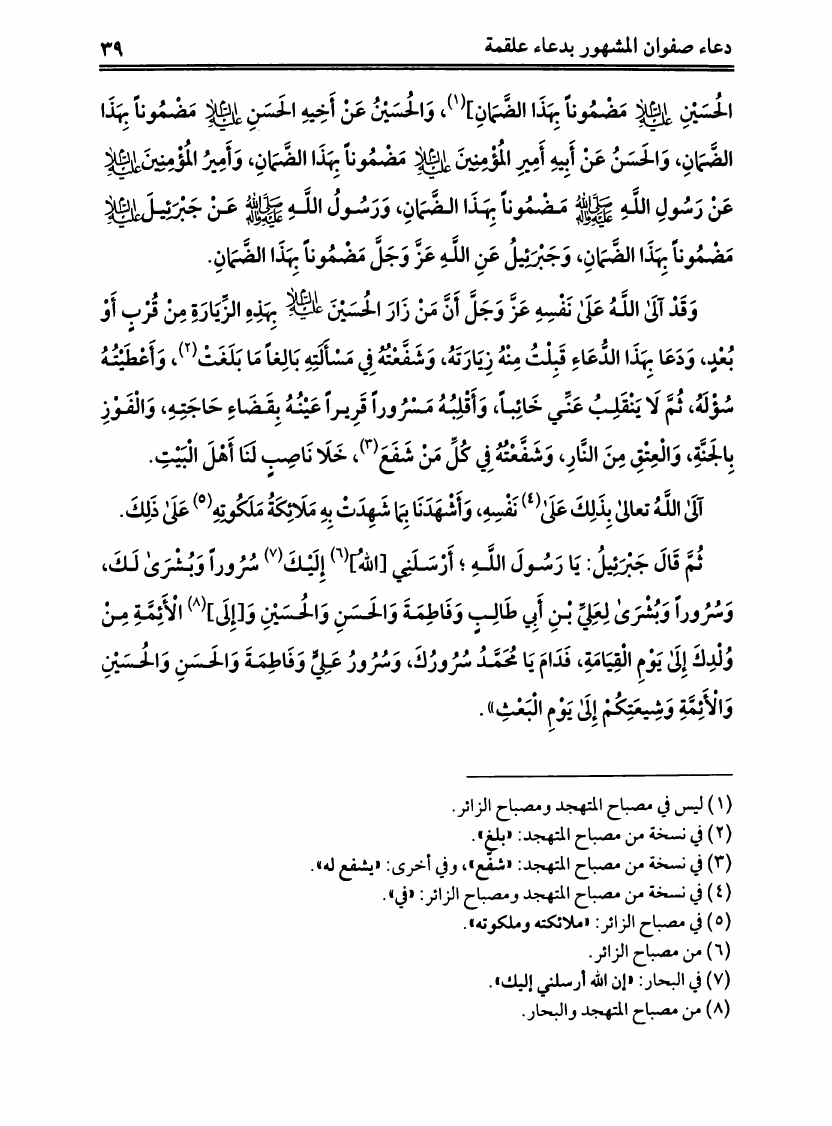 دعاء صفوان المشهور بدعاء علقمة ٣٩
الحُسَيْنِ عليه السلام مَضْمُوناً بِهَذَا الضَّمَانِ](١)، وَالحُسَيْنُ عَنْ أَخِيهِ الحَسَنِ عليه السلام مَضْمُوناً بِهَذَا
الضَّمَانِ، وَالحَسَنُ عَنْ أَبِيهِ أَمِيرِ المُؤْمِنِينَ عليه السلام مَضْمُوناً بِهَذَا الضَّمَانِ، وَأَمِيرُ المُؤْمِنِينَ عليه السلام
عَنْ رَسُولِ اللَّهِ ﷺ مَضْمُوناً بِهَذَا الضَّمَانِ، وَرَسُولُ اللَّهِ ﷺ عَنْ جَبْرَئِيلَ عليه السلام
مَضْمُوناً بِهَذَا الضَّمَانِ، وَجَبْرَئِيلُ عَنِ اللَّهِ عَزَّ وَجَلَّ مَضْمُوناً بِهَذَا الضَّمَانِ.
وَقَدْ آلَىٰ اللَّهُ عَلَىٰ نَفْسِهِ عَزَّ وَجَلَّ أَنَّ مَنْ زَارَ الحُسَيْنَ عليه السلام بِهَذِهِ الزِّيَارَةِ مِنْ قُرْبٍ أَوْ
بُعْدٍ، وَدَعَا بِهَذَا الدُّعَاءِ قَبِلْتُ مِنْهُ زِيَارَتَهُ، وَشَفَّعْتُهُ فِي مَسْأَلَتِهِ بَالِغاً مَا بَلَغَتْ(٢)، وَأَعْطَيْتُهُ
سُؤْلَهُ، ثُمَّ لَا يَنْقَلِبُ عَنِّي خَائِباً، وَأَقْلِبُهُ مَسْرُوراً قَرِيراً عَيْنُهُ بِقَضَاءِ حَاجَتِهِ، وَالْفَوْزِ
بِالجَنَّةِ، وَالْعِتْقِ مِنَ النَّارِ، وَشَفَّعْتُهُ فِي كُلِّ مَنْ شَفَعَ(٣)، خَلَا نَاصِبٍ لَنَا أَهْلَ الْبَيْتِ.
آلَىٰ اللَّهُ تعالىٰ بِذَلِكَ عَلَىٰ(٤) نَفْسِهِ، وَأَشْهَدَنَا بِمَا شَهِدَتْ بِهِ مَلَائِكَةُ مَلَكُوتِهِ(٥) عَلَىٰ ذَلِكَ.
ثُمَّ قَالَ جَبْرَئِيلُ: يَا رَسُولَ اللَّهِ ؛ أَرْسَلَنِي [اللهُ](٦) إِلَيْكَ(٧) سُرُوراً وَبُشْرَىٰ لَكَ،
وَسُرُوراً وَبُشْرَىٰ لِعَلِيِّ بْنِ أَبِي طَالِبٍ وَفَاطِمَةَ وَالحَسَنِ وَالحُسَيْنِ وَ[إِلَى](٨) الْأَئِمَّةِ مِنْ
وُلْدِكَ إِلَىٰ يَوْمِ الْقِيَامَةِ، فَدَامَ يَا مُحَمَّدُ سُرُورُكَ، وَسُرُورُ عَلِيٍّ وَفَاطِمَةَ وَالحَسَنِ وَالحُسَيْنِ
وَالْأَئِمَّةِ وَشِيعَتِكُمْ إِلَىٰ يَوْمِ الْبَعْثِ».
(١) ليس في مصباح المتهجد ومصباح الزائر.
(٢) في نسخة من مصباح المتهجد: «بلغ».
(٣) في نسخة من مصباح المتهجد: «شفّع»، وفي أخرى: «يشفع له».
(٤) في نسخة من مصباح المتهجد ومصباح الزائر: «في».
(٥) في مصباح الزائر: «ملائكته وملكوته».
(٦) من مصباح الزائر.
(٧) في البحار: «إن الله أرسلني إليك».
(٨) من مصباح المتهجد والبحار.